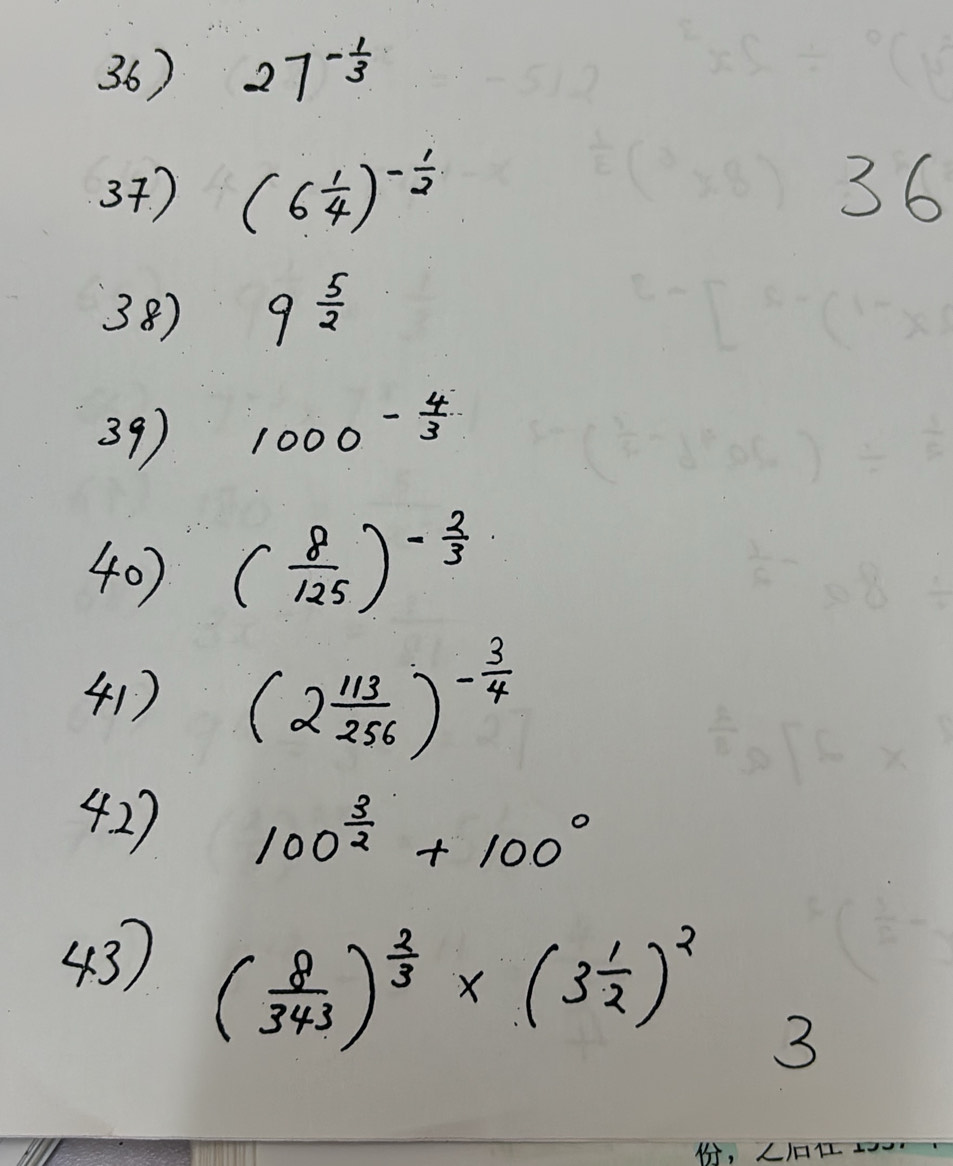 36) 27^{-\frac{1}{3}}
37) (6\frac{1}{4})^{-\frac{1}{2}}
36
38) 9^{\frac{5}{2}}
39) 1000^{-\frac{4}{3}}
40) (\frac{8}{125})^{-\frac{2}{3}}
41) (2\frac{113}{256})^{-\frac{3}{4}}
42) 100^{\frac{3}{2}} + 100^{0}
43) (\frac{8}{343})^{\frac{2}{3}} × (3\frac{1}{2})^{2}
3
份,之后在